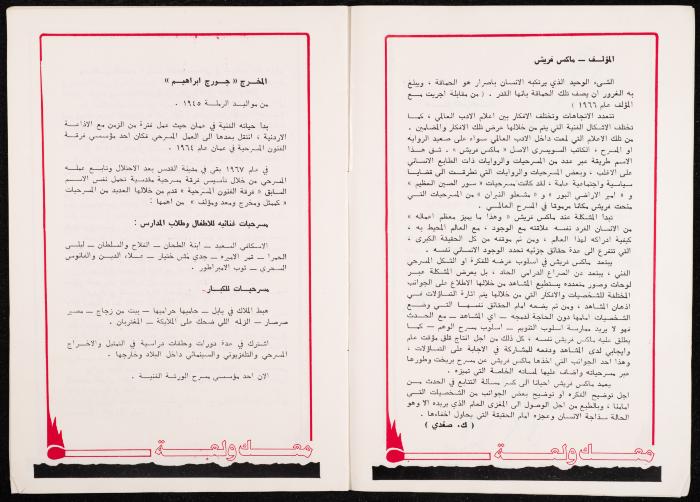 المؤلف — ماكس فريش
الشيء الوحيد الذي يرتكبه الانسان باصرار هو الحماقة ، ويبلغ
به الغرور ان يصف تلك الحماقة بانها القدر . ( من مقابلة اجريت مع
المؤلف عام ١٩٦٦ )
تتعدد الاتجاهات وتختلف الافكار بين اعلام الادب العالمي ، كما
تختلف الاشكال الفنية التي يتم من خلالها عرض تلك الافكار والمضامين .
من تلك الاعلام التي لمعت داخل الادب العالمي سواء على صعيد الرواية
او المسرح ، الكاتب السويسري الاصل « ماكس فريش » . شق هذا
الاسم طريقة عبر عدد من المسرحيات والروايات ذات الطابع الانساني
على الاغلب ، وبعض المسرحيات والروايات التي تطرقت الى قضايا
سياسية واجتماعية عامة ، لقد كانت مسرحيات « سور الصين العظيم »
و « امير الاراضي البور » و « مشعلو النيران » من المسرحيات التي
منحت فريش مكانا مرموقا في المسرح العالمي .
تبدأ المشكلة عند ماكس فريش « وهذا ما يميز معظم اعماله »
من الانسان الفرد نفسه علاقته مع الوجود ، مع العالم المحيط به ،
كيفية ادراكه لهذا العالم ، ومن ثم موقفه من كل الحقيقة الكبرى ،
التي تتفرع الى عدة حقائق جزئيه تحدد الوجود الانساني نفسه .
يبتعد ماكس فريش في اسلوب عرضه للفكرة او الشكل المسرحي
الفني ، يبتعد عن الصراع الدرامي الحاد ، بل يعرض المشكلة عبر
لوحات وصور متعدده يستطيع المشاهد من خلالها الاطلاع على الجوانب
المختلفة للشخصيات والافكار التي من خلالها يتم اثارة التساؤلات في
اذهان المشاهد ، ومن ثم يضعه امام الحقائق نفسها التي وضع
الشخصيات امامها دون الحاجة لدمجه — اي المشاهد — مع الحدث
فهو لا يريد ممارسة اسلوب التنويم — اسلوب مسرح الوهم — كما
يطلق عليه ماكس فريش نفسه ، كل ذلك من اجل انتاج قلق مؤقت عام
وايجابي لدى المشاهد ودفعه للمشاركة في الاجابة على التساؤلات ،
وهذا احد الجوانب التي اخذها ماكس فريش عن مسرح بريخت وطورها
عبر مسرحياته واضاف عليها لمساته الخاصة التي تميزه .
يعمد ماكس فريش احيانا الى كسر مسالة التتابع في الحدث من
اجل توضيح الفكره او توضيح بعض الجوانب من الشخصيات التي
امامنا ، وبالطبع من اجل الوصول الى المغزى العام الذي يريده الا وهو
الحالة سذاجة الانسان وعجزه امام الحقيقة التي يحاول اخفاءها .
( ك. صفدي )
معك ولعة
المخرج « جورج ابراهيم »
من مواليد الرملة ١٩٤٥ .
بدأ حياته الفنية في عمان حيث عمل فترة من الزمن مع الاذاعة
الاردنية ، انتقل بعدها الى العمل المسرحي فكان احد مؤسسي فرقة
الفنون المسرحية في عمان عام ١٩٦٤ .
في عام ١٩٦٧ بقي في مدينة القدس بعد الاحتلال وتابع عمله
المسرحي من خلال تأسيس فرقة مسرحية مقدسية تحمل نفس الاسم
السابق « فرقة الفنون المسرحية » قدم من خلالها العديد من المسرحيات
« كممثل ومخرج ومعد ومؤلف » من اهمها :
مسرحيات غنائيه للاطفال وطلاب المدارس :
الاسكافي السعيد — ابنة الطحان — الفلاح والسلطان — ليلى
الحمرا — قمر الاميره — جدي مش ختيار — علاء الدين والفانوس
السحري — ثوب الامبراطور .
مسرحيات للكبار
هبط الملاك في بابل — حاميها حراميها — بيت من زجاج — مصير
صرصار — الزله اللي ضحك على الملايكة — المغتربان .
اشترك في عدة دورات وحلقات دراسية في التمثيل والاخراج
المسرحي والتلفزيوني والسينمائي داخل البلاد وخارجها .
الان احد مؤسسي مسرح الورشة الفنية .
معك ولعة